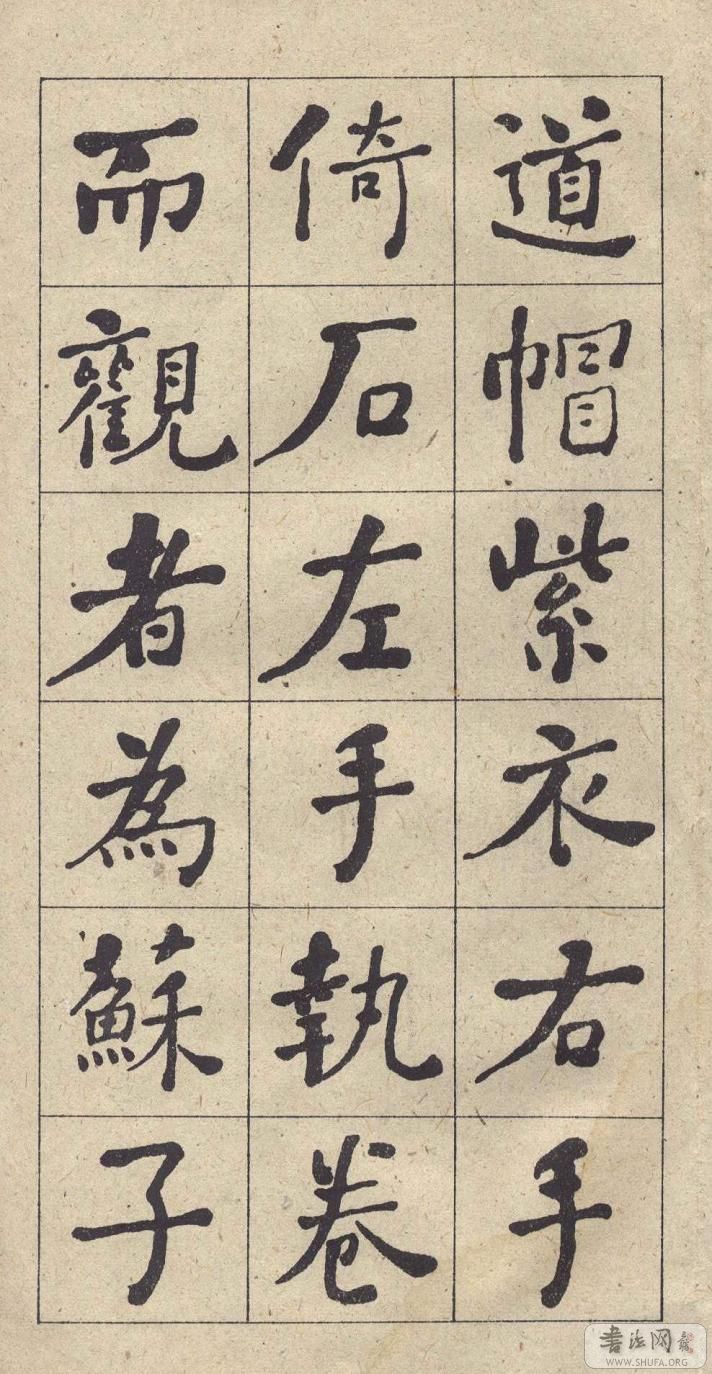 道帽紫衣右手
倚石左手執卷
而觀者為蘇子
書法网
WWW.SHUFA.ORG